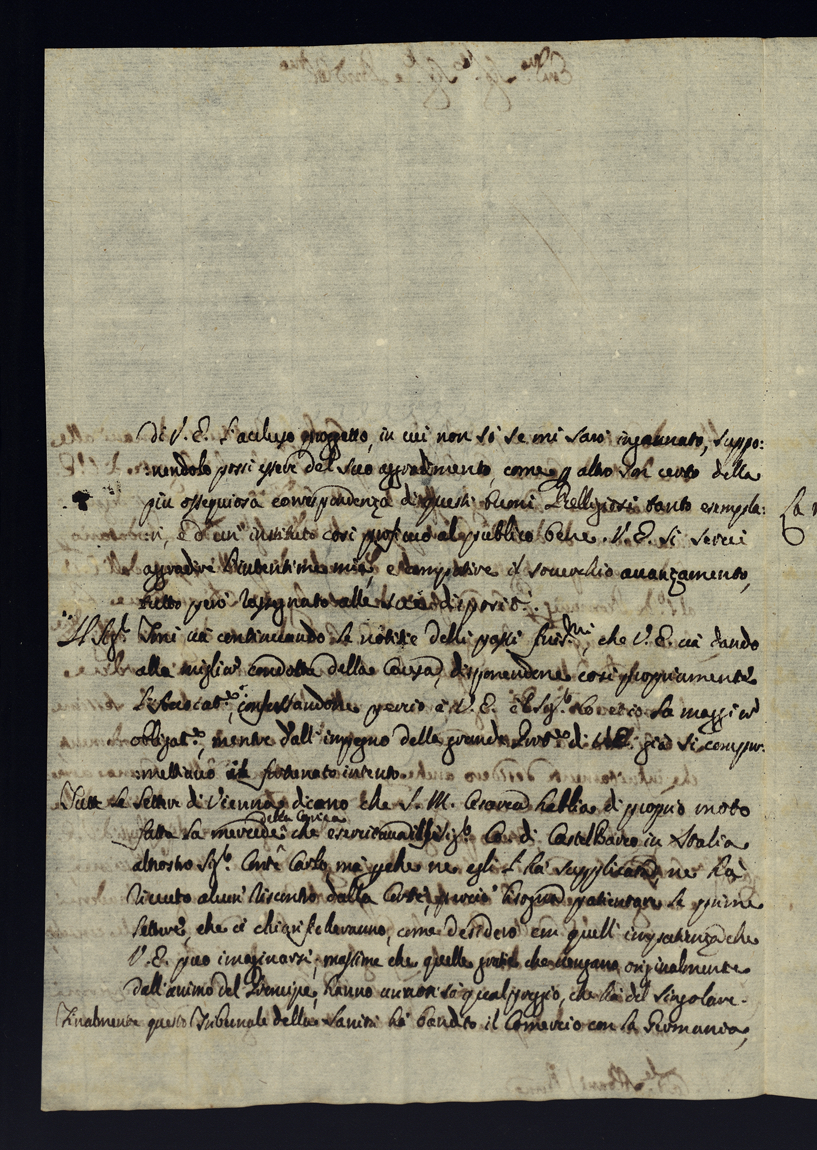 di V. E. l'acluso proggetto, in cui non sò se mi sarò ingannato, suppo:
:nendolo possi essere del suo aggradimento, come p altro son certo della
più ossequiosa corrispondenza di questi buoni Relligiosi tanto esempla:
ri, e d'un instituto così proficuo al publico bene. V. E. si servi
aggradire l'intentione mia, e compatire il soverchio avanzamento,
tutto però rassegnato alle sue disposit.
Il Sig.r Toni và continuando le notitie delli passi, che V. E. và dando
alla miglior condotta della Causa, disponendone così propriamente
l'Avocat.o, confessandone perciò à V. E. la maggior
obligat.e, mentre dall'impegno della grande di già si comprr.
mettiamo il fortunato intento.
Tutte le lettere di Vienna dicono che S. M. Cesarea habbia di proprio moto
fatta la mercede della Carica che esercitava Sig.r Co. di Castelbarco in Italia
al nostro Sig.r Conte Carlo, mà perche ne egli l'hà supplicata, ne hà
ricevuto alcun riscontro dalla Corte, perciò bisogna patientare le prime
lettere, che ci chiarificheranno, come desidero con quell' che
V. E. può imaginarsi, massime che quelle gratie che vengano originalmente
dall'animo del Principe, hanno un non sò qual poggio, che hà del singolare.
Finalmente questo Tribunale della Sanità hà bandito il Comercio con la Romania,